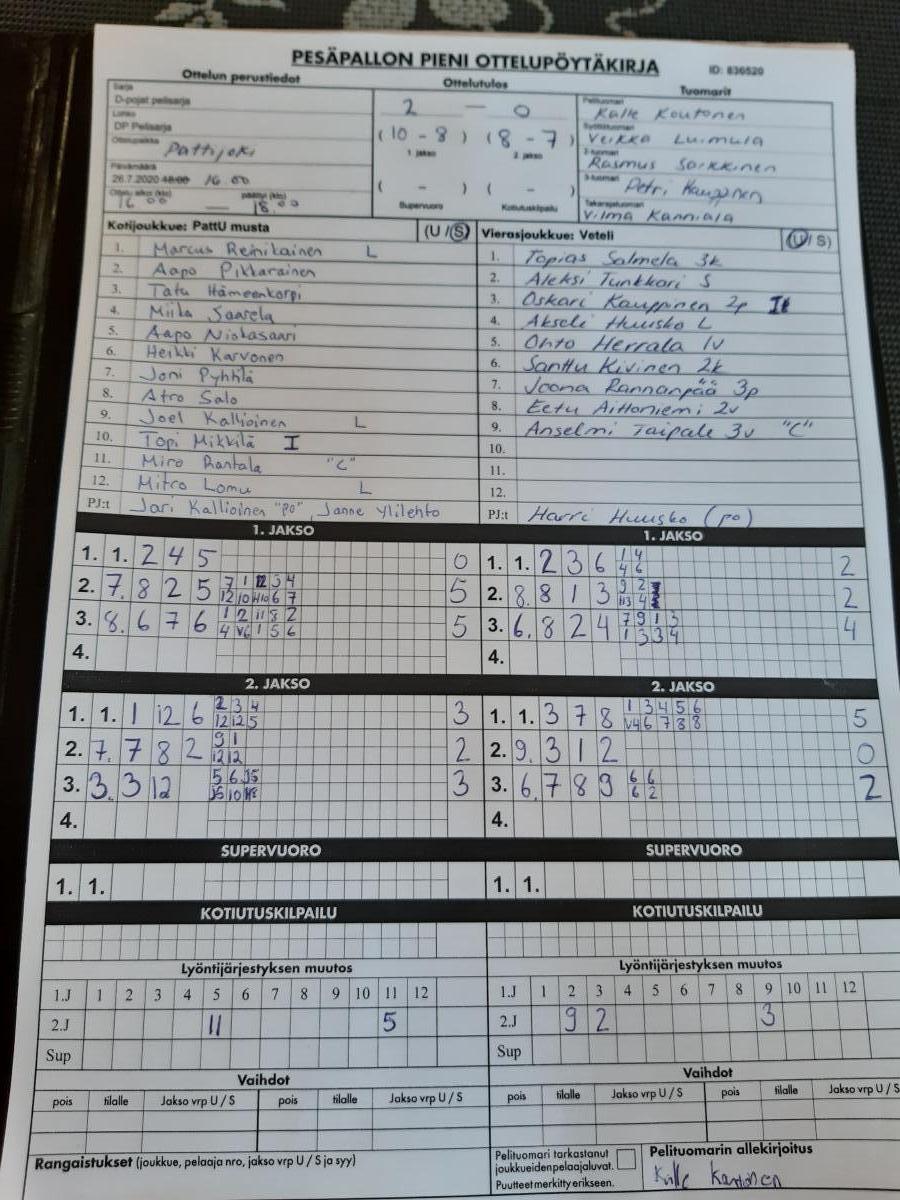 PESÄPALLON PIENI OTTELUPÖYTÄKIRJA
ID: 836520
Ottelun perustiedot
Sarja
D-pojat pelisarja
Lohko
DP Pelisarja
Ottelupaikka
Pattijoki
Päivämäärä
26.7.2020 18:00 16.00
Ottelu alkoi (klo) päättyi (klo)
16 00 — 18.00
Ottelutulos
2 — 0
(10 - 8) (8 - 7)
1. jakso 2. jakso
( - ) ( - )
Supervuoro Kotiutuskilpailu
Tuomarit
Pelituomari
Kalle Koutonen
Syöttötuomari
Veikka Luimula
2-tuomari
Rasmus Sarkkinen
3-tuomari
Petri Kauppinen
Takarajatuomari
Vilma Kanniala
Kotijoukkue: PattU musta (U / S)
1. Marcus Reinikainen L
2. Aapo Pikkarainen
3. Tatu Hämeenkorpi
4. Miika Saarela
5. Aapo Niskasaari
6. Heikki Karvonen
7. Joni Pyhhlä
8. Atro Salo
9. Joel Kallioinen L
10. Topi Mikkilä I
11. Miro Rantala "C"
12. Mitro Lomu L
PJ:t Jari Kallioinen "po", Janne Ylilehto
Vierasjoukkue: Veteli (U / S)
1. Topias Salmela 3k
2. Aleksi Tunkkari S
3. Oskari Kauppinen 2p
4. Akseli Huusko L
5. Ohto Herrala 1v
6. Santtu Kivinen 2k
7. Joona Rannanpää 3p
8. Eetu Aittoniemi 2v
9. Anselmi Taipale 3v "C"
10.
11.
12.
PJ:t Harri Huusko (po)
1. JAKSO
1. 1. 2 4 5 0
2. 7. 8 2 5 5
3. 8. 6 7 6 5
4.
1. JAKSO
1. 1. 2 3 6 1 4 2
4 6
2. 8. 8 1 3 9 2 2
3. 6. 8 2 4 7 9 1 3 4
1 3 3 4
4.
2. JAKSO
1. 1. 1 12 6 2 3 4 3
12 12 5
2. 7. 7 8 2 9 1 2
12 12
3. 3. 3 12 3
4.
2. JAKSO
1. 1. 3 7 8 1 3 4 5 6 5
2. 9. 3 1 2 0
3. 6. 7 8 9 6 6 2
6 2
4.
SUPERVUORO
1. 1.
SUPERVUORO
1. 1.
KOTIUTUSKILPAILU
KOTIUTUSKILPAILU
Lyöntijärjestyksen muutos
1.J 1 2 3 4 5 6 7 8 9 10 11 12
2.J 11 5
Sup
Lyöntijärjestyksen muutos
1.J 1 2 3 4 5 6 7 8 9 10 11 12
2.J 9 2 3
Sup
Vaihdot
pois tilalle Jakso vrp U / S pois tilalle Jakso vrp U / S
Vaihdot
pois tilalle Jakso vrp U / S pois tilalle Jakso vrp U / S
Rangaistukset (joukkue, pelaaja nro, jakso vrp U / S ja syy)
Pelituomari tarkastanut
joukkueiden pelaajaluvat.
Puutteet merkitty erikseen.
Pelituomarin allekirjoitus
Kalle Koutonen